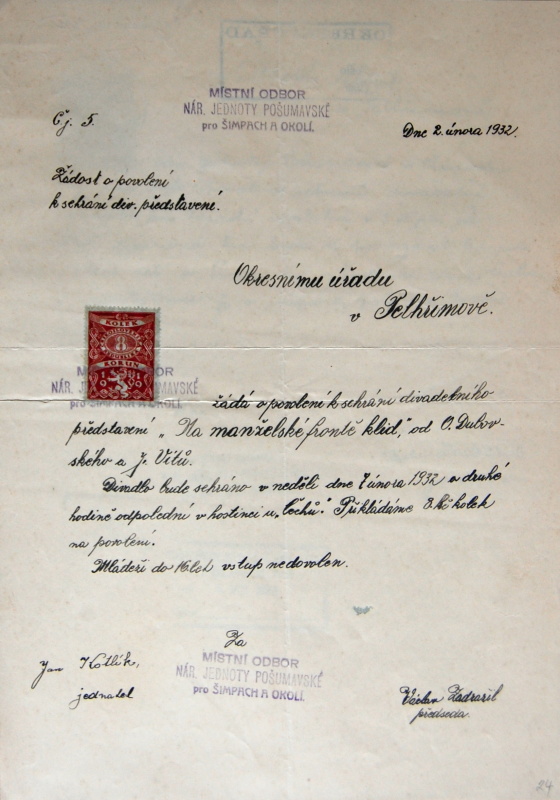 MÍSTNÍ ODBOR
NÁR. JEDNOTY POŠUMAVSKÉ
pro ŠIMPACH A OKOLÍ.
Čj. 5.
Dne 2. února 1932.
Žádost o povolení
k sehrání div. představení.
Okresnímu úřadu
v Pelhřimově.
KOLEK
8
KORUN
MÍSTNÍ ODBOR
NÁR. JEDNOTY POŠUMAVSKÉ
pro ŠIMPACH A OKOLÍ.
žádá o povolení k sehrání divadelního
představení „Na manželské frontě klid," od O. Dubov-
ského a J. Vitů.
Divadlo bude sehráno v neděli dne 7 února 1932 o druhé
hodině odpolední v hostinci u „Čechů". Přikládáme 8 kč kolek
na povolení.
Mládeži do 16 let vstup nedovolen.
Za
MÍSTNÍ ODBOR
NÁR. JEDNOTY POŠUMAVSKÉ
pro ŠIMPACH A OKOLÍ.
Jan Kotlík,
jednatel
Václav Zadražil
předseda.
24